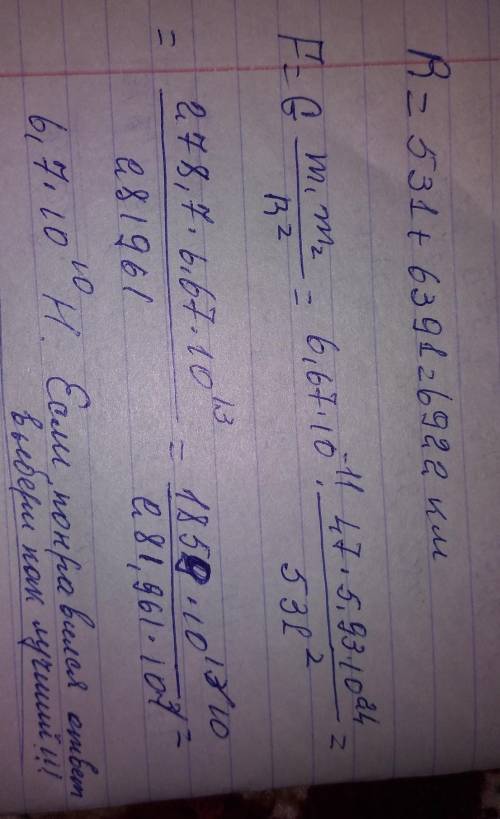 R = 531 + 6391 = 6922 км
F = G m₁m₂ / R² = 6,67·10⁻¹¹ · 47·5,93·10²⁴ / 531² =
= 278,7·6,67·10¹³ / 281961 = 1859·10¹³ ¹⁰ / 281,961·10³ =
6,7·10¹⁰ Н. Если понравился ответ
выбери как лучший!!!